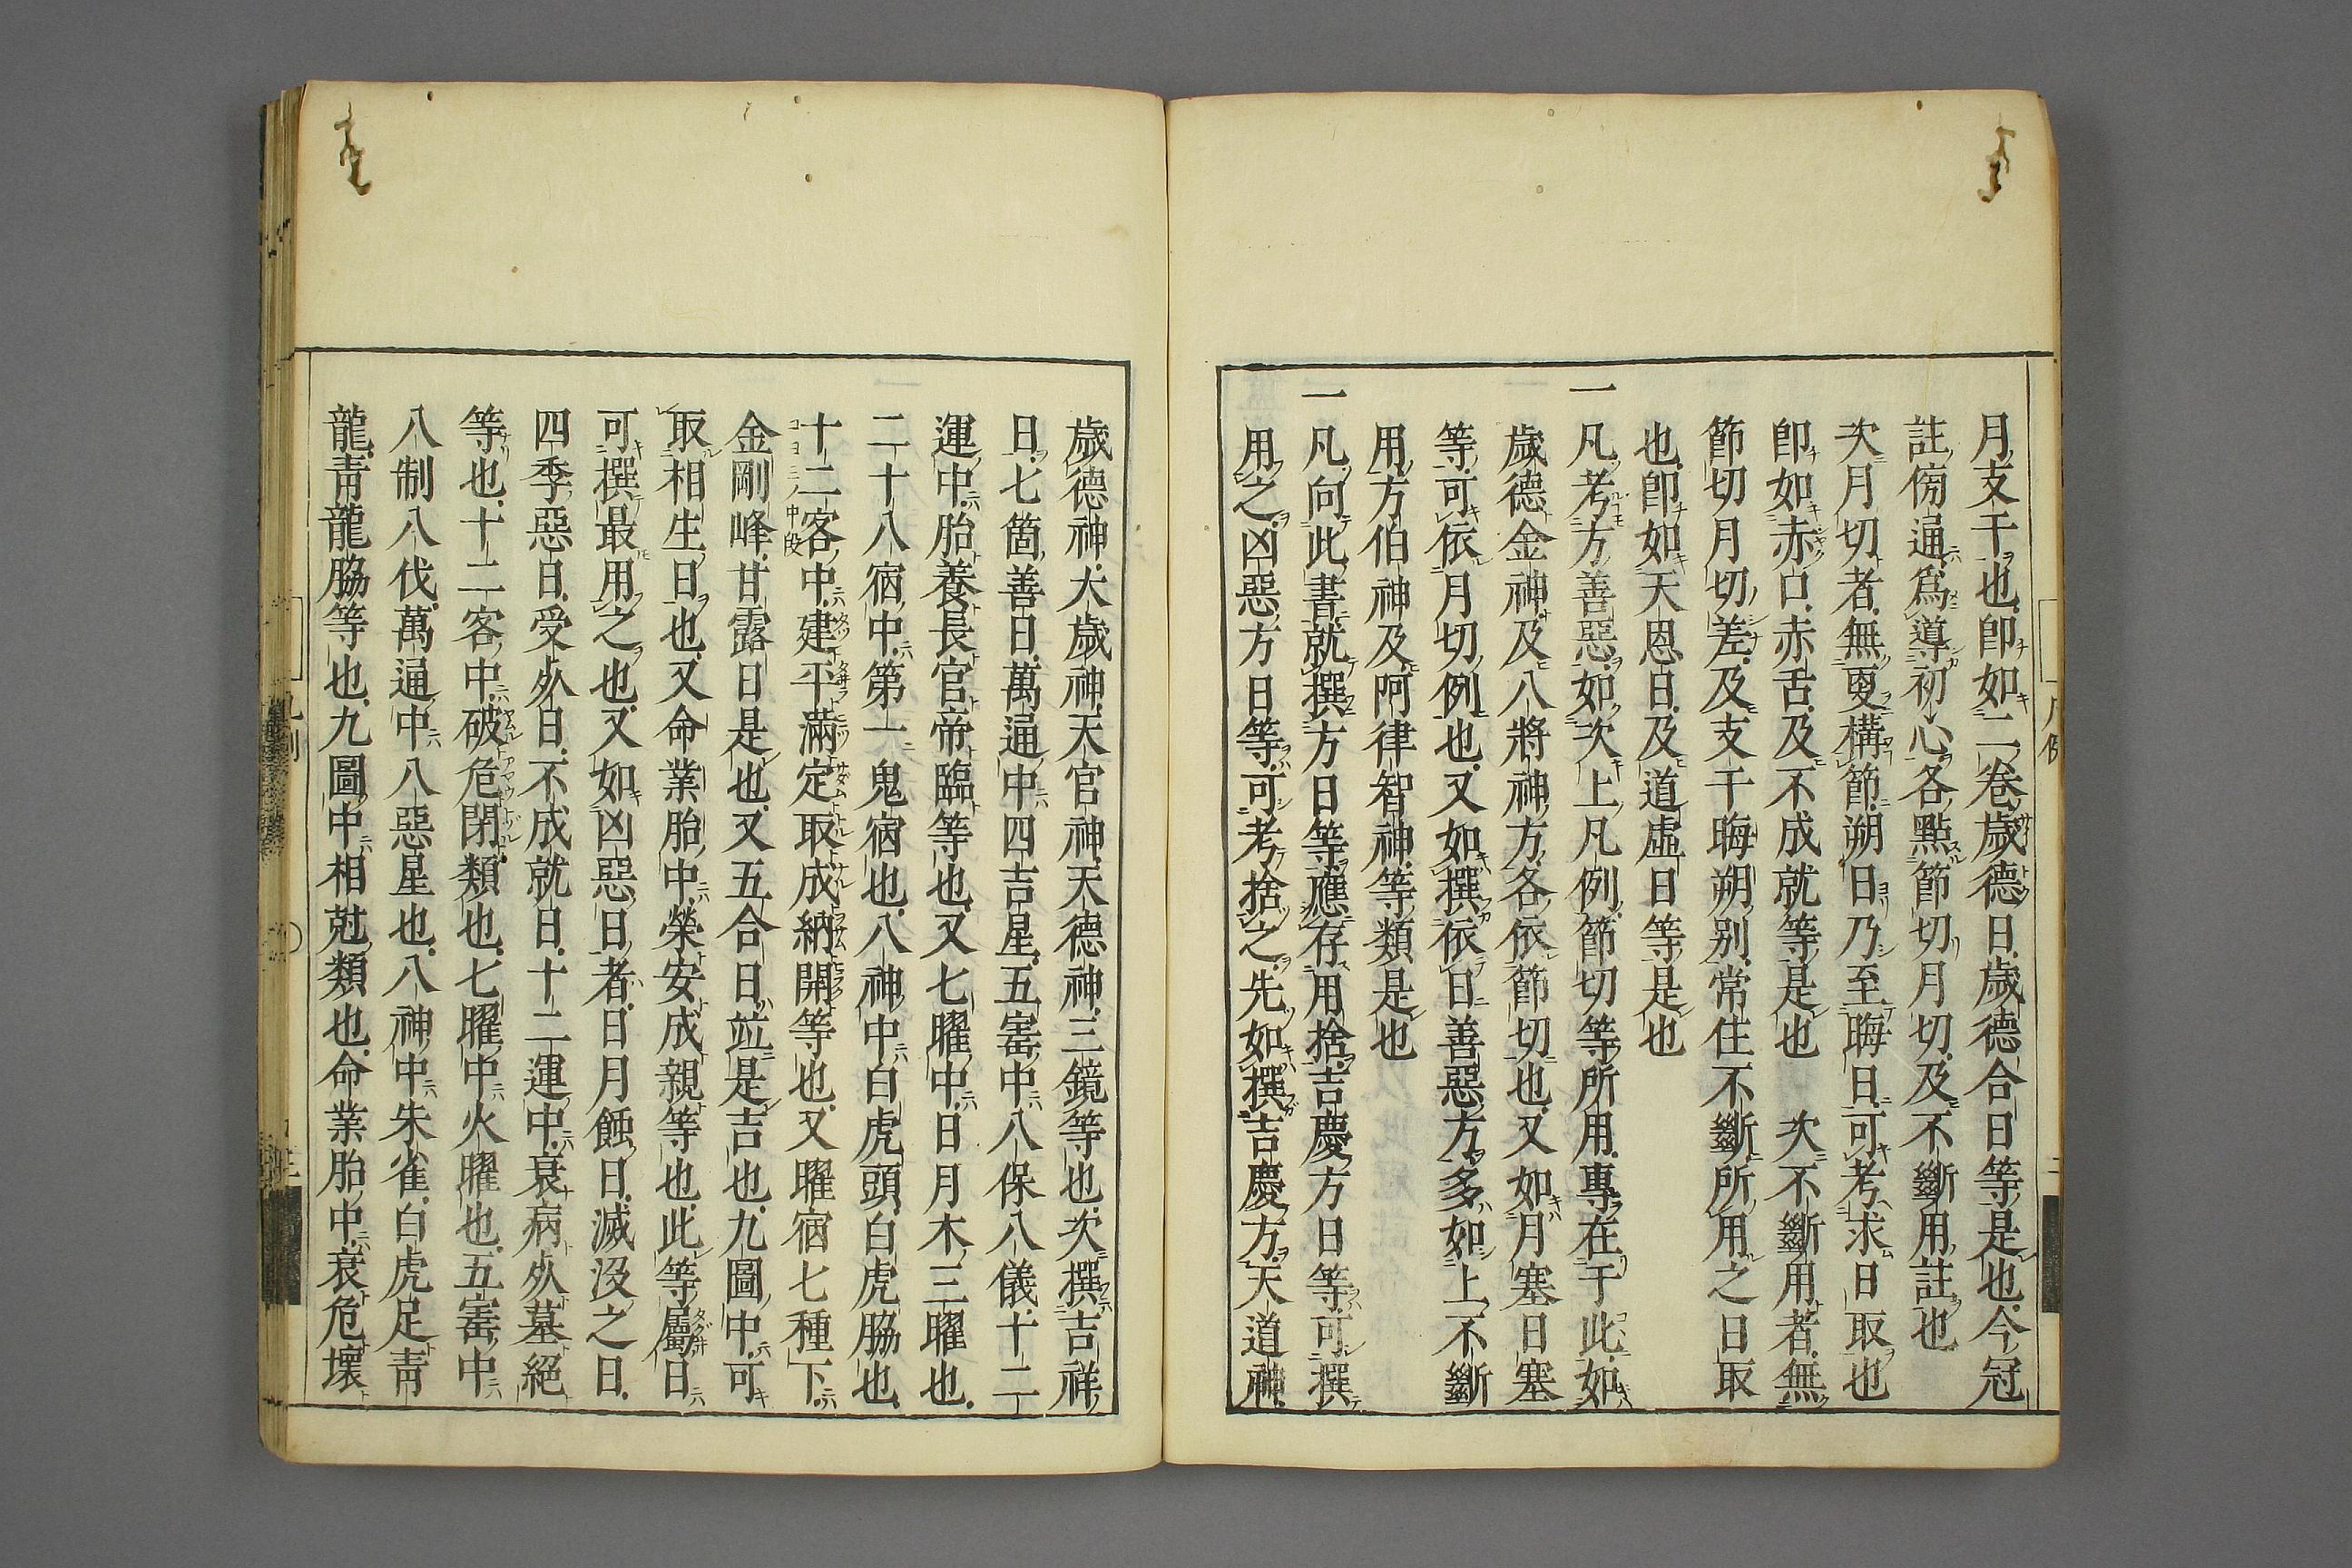 月支干也即如二卷歲德日歲德合日等是也今冠
註傍通爲導初心各點節切月切及不斷用註也
次月切者無更構節朔日乃至晦日可考求日取也
即如赤口赤舌及不成就等是也　次不斷用者無
節切月切差及支干晦朔別常住不斷所用之日取
也即如天恩日及道虛日等是也
一凡考方善惡如次上凡例節切等所用專在于此如
歲德金神及八將神方各依節切也又如月塞日塞
等可依月切例也又如撰依日善惡方多如上不斷
用方伯神及阿律智神等類是也
一凡向此書就撰方日等應存用捨吉慶方日等可撰
用之凶惡方日等可考捨之先如撰吉慶方天道神
歲德神大歲神天官神天德神三鏡等也次撰吉祥
日七箇善日萬通中四吉星五寚中八保八儀十二
運中胎養長官帝臨等也又七曜中日月木三曜也
二十八宿中第一鬼宿也八神中白虎頭白虎脇也
十二客中建平滿定取成納開等也又曜宿七種下
金剛峰甘露日是也又五合日竝是吉也九圖中可
取相生日也又命業胎中榮安成親等也此等屬日
可撰最用之也又如凶惡日者日月蝕日滅沒之日
四季惡日受死日不成就日十二運中衰病死墓絕
等也十二客中破危閉類也七曜中火曜也五寚中
八制八伐萬通中八惡星也八神中朱雀白虎足靑
龍靑龍脇等也九圖中相尅類也命業胎中衰危壞